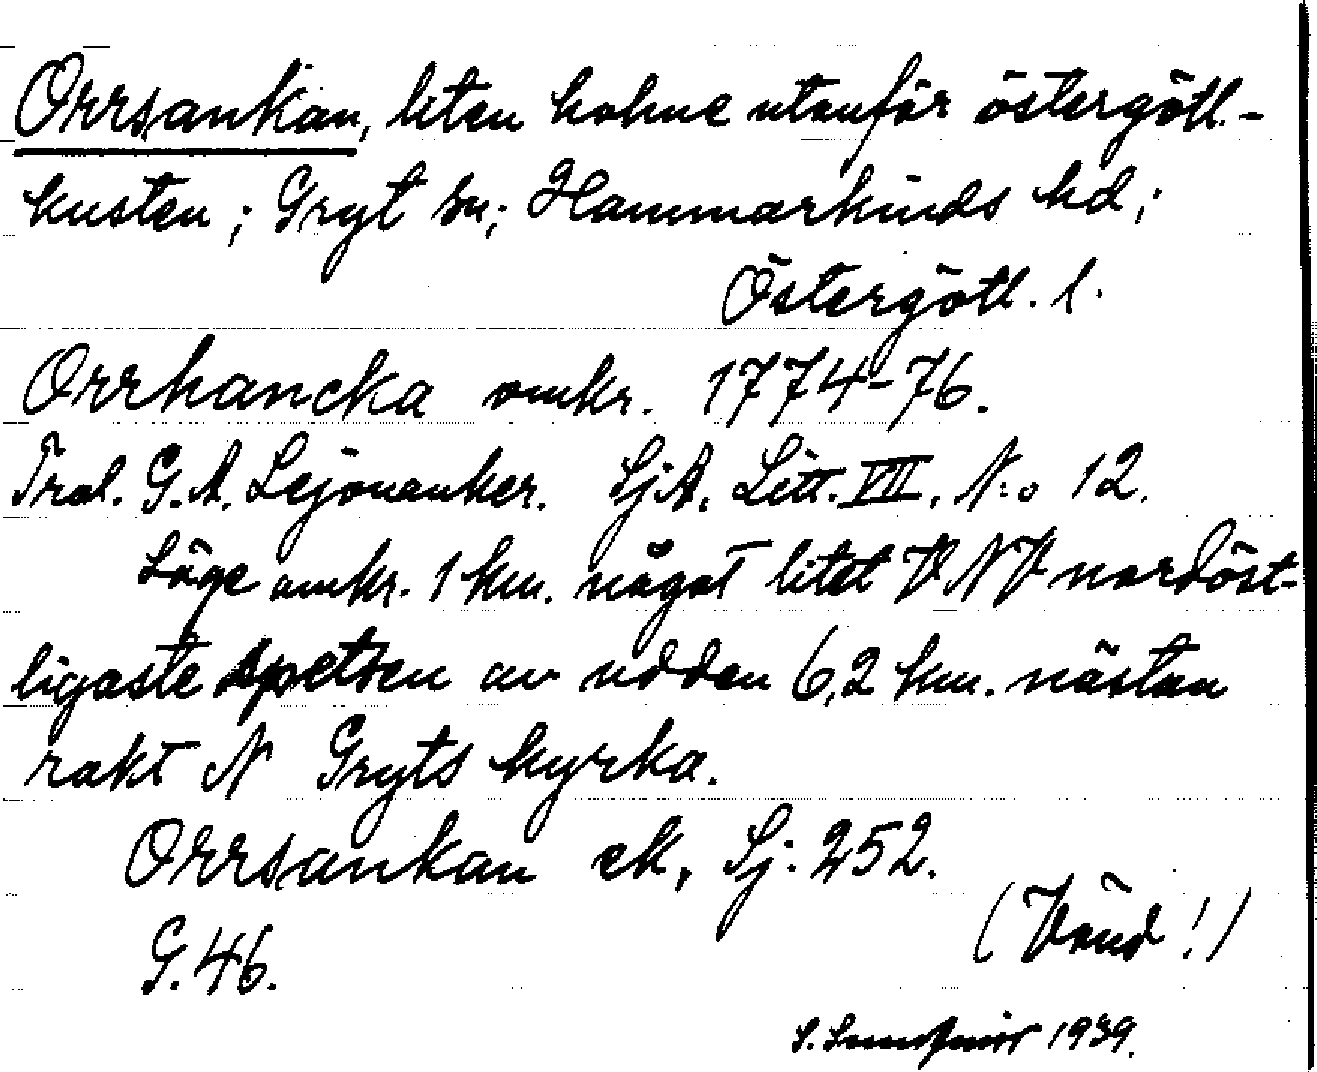 Orrsankan, liten holme utanför östergötl.-
kusten; Gryt sn; Hammarkinds hd;
Östergötl. l.
Orrhancka omkr. 1774-76.
Tral. G.A. Lejonanker. SjA. Litt. VII. N:o 12.
Läge omkr. 1 km. något litet V NV nordöst-
ligaste spetsen av udden 6,2 km. nästan
rakt N Gryts kyrka.
Orrsankan ek, Sj: 252.
(Vänd!)
G. 46.
S. 1939.